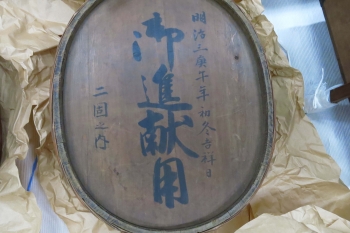 明治三庚午年初冬吉祥日
御進献用
二固之内